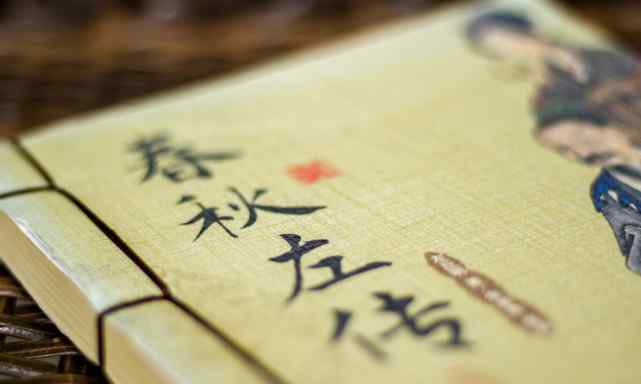 春秋左传